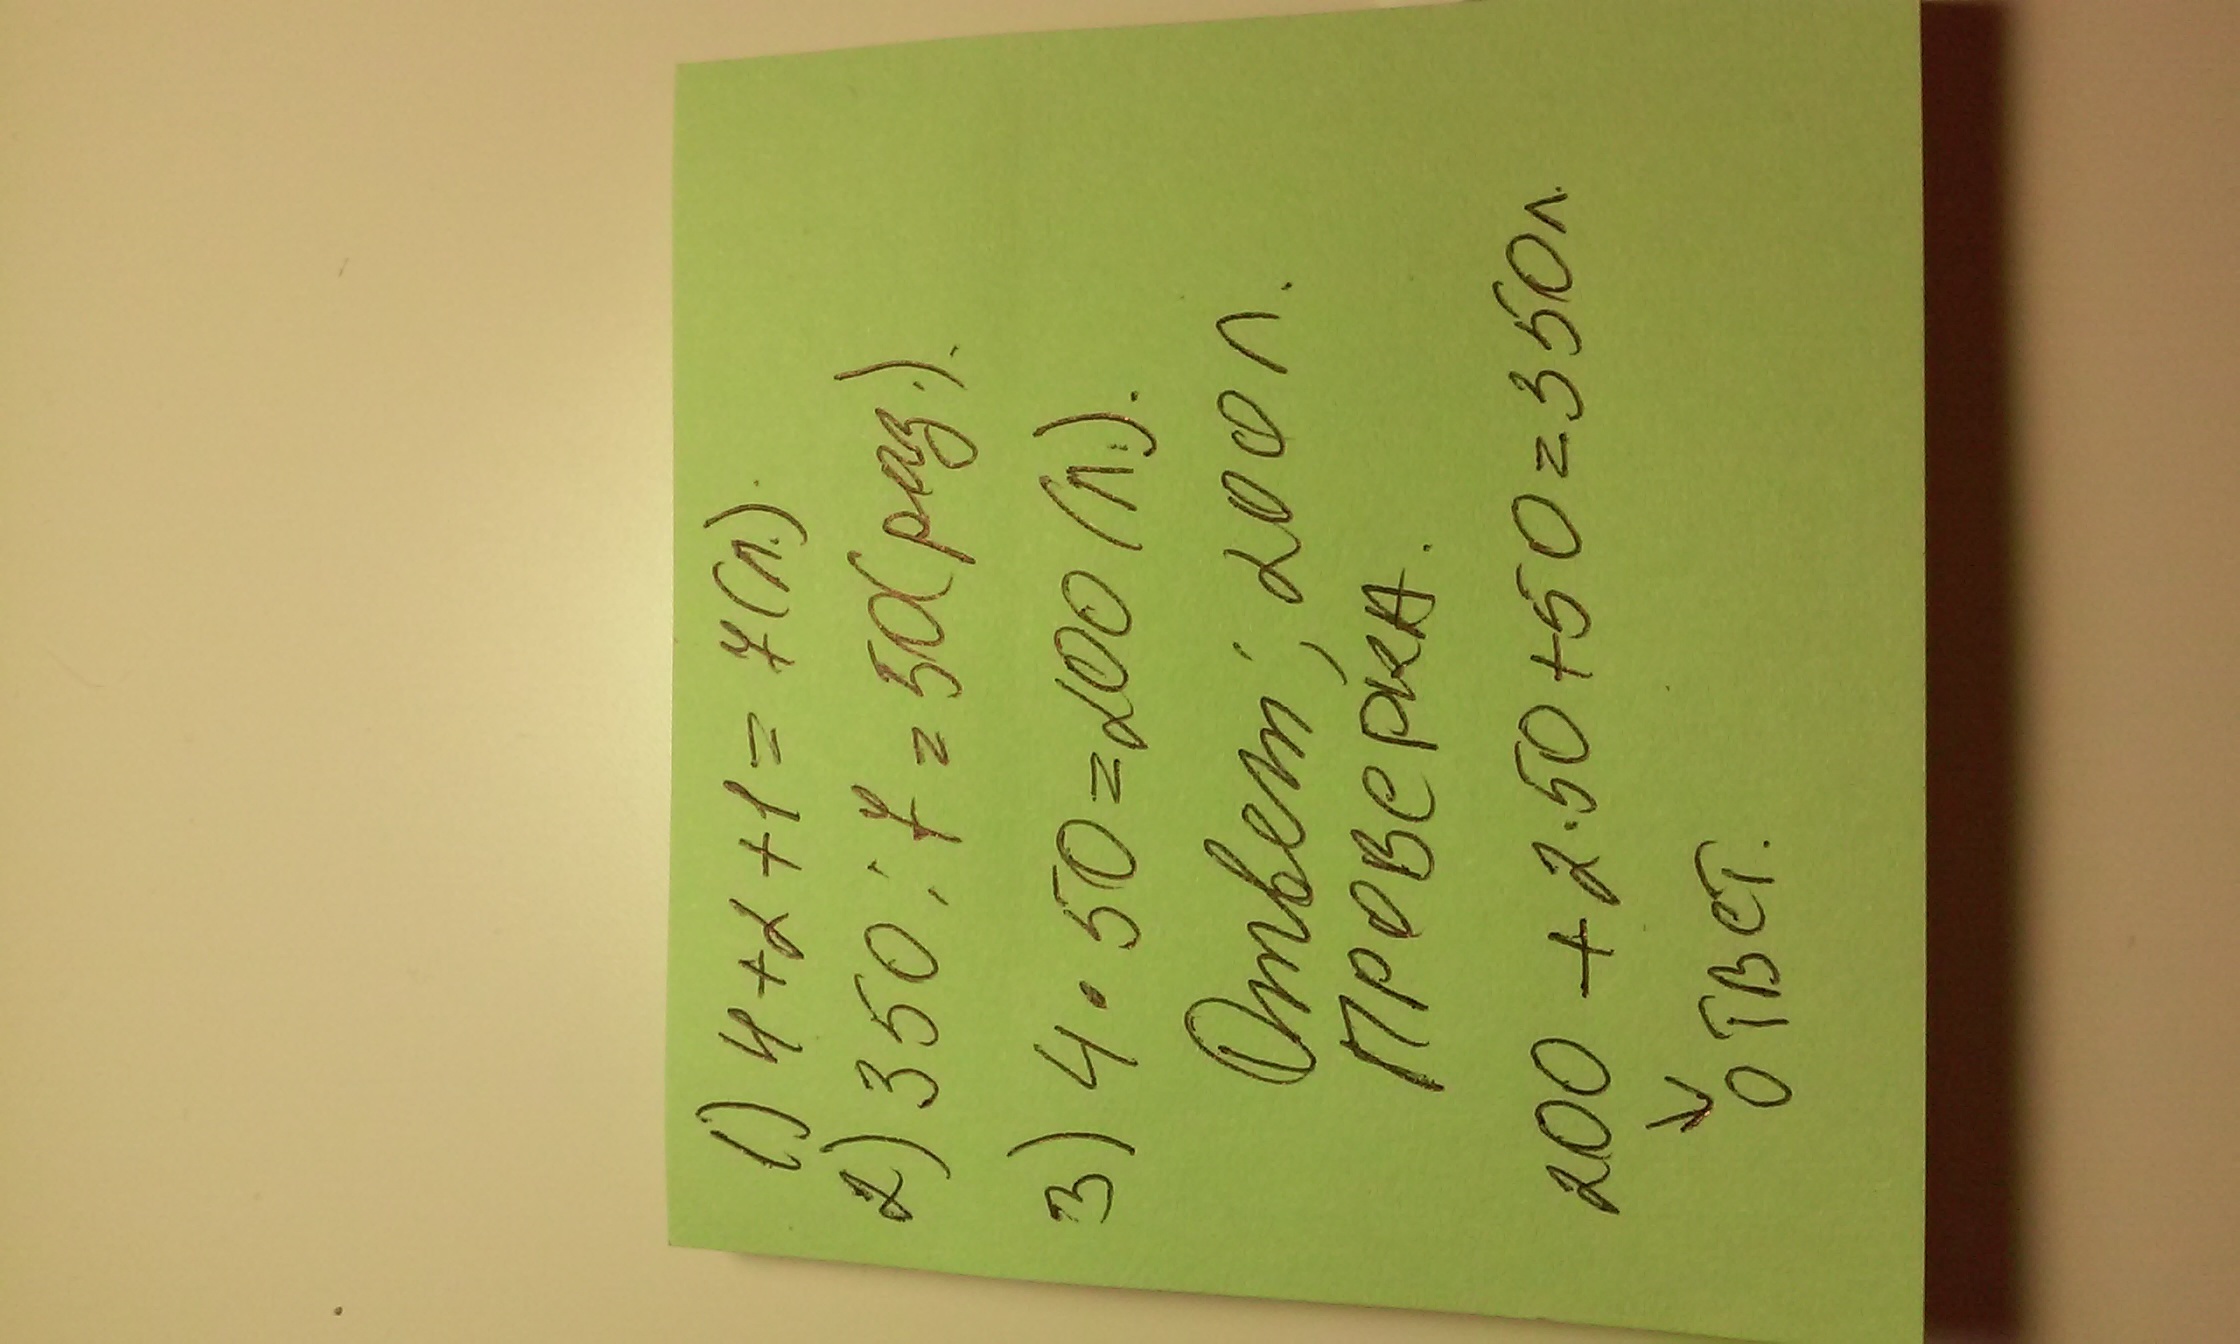 1) 4+2+1=7(л).
2) 350:7=50(раз.).
3) 4·50=200(л.).
Ответ: 200 л.
ПРОВЕРКА.
200+2·50+50=350л.
↓
ОТВЕТ.